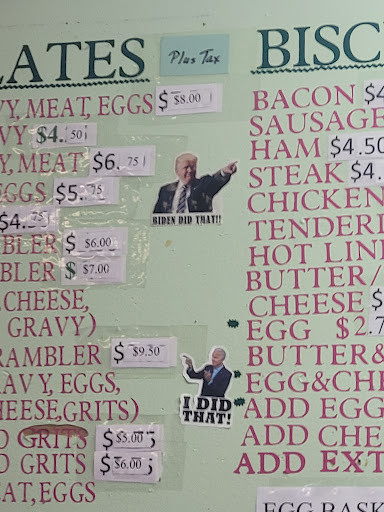 LATES
Plus Tax
VY, MEAT, EGGS $ $8.00
VY $4. 50
Y, MEAT $6. 75
EGGS $5. 75
$4. 25
BLER $ $6.00
BLER $ $7.00
CHEESE,
GRAVY)
RAMBLER $ $9.50
RAVY, EGGS,
HEESE,GRITS)
O GRITS $ $5.00
O GRITS $ $6.00
EAT,EGGS
BIDEN DID THAT!!
I DID
THAT!
BISC
BACON $4
SAUSAGE
HAM $4.50
STEAK $4.
CHICKEN
TENDERL
HOT LIN
BUTTER/
CHEESE $
EGG $2.7
BUTTER&
EGG&CH
ADD EGG
ADD CHE
ADD EXT
EGG BASK